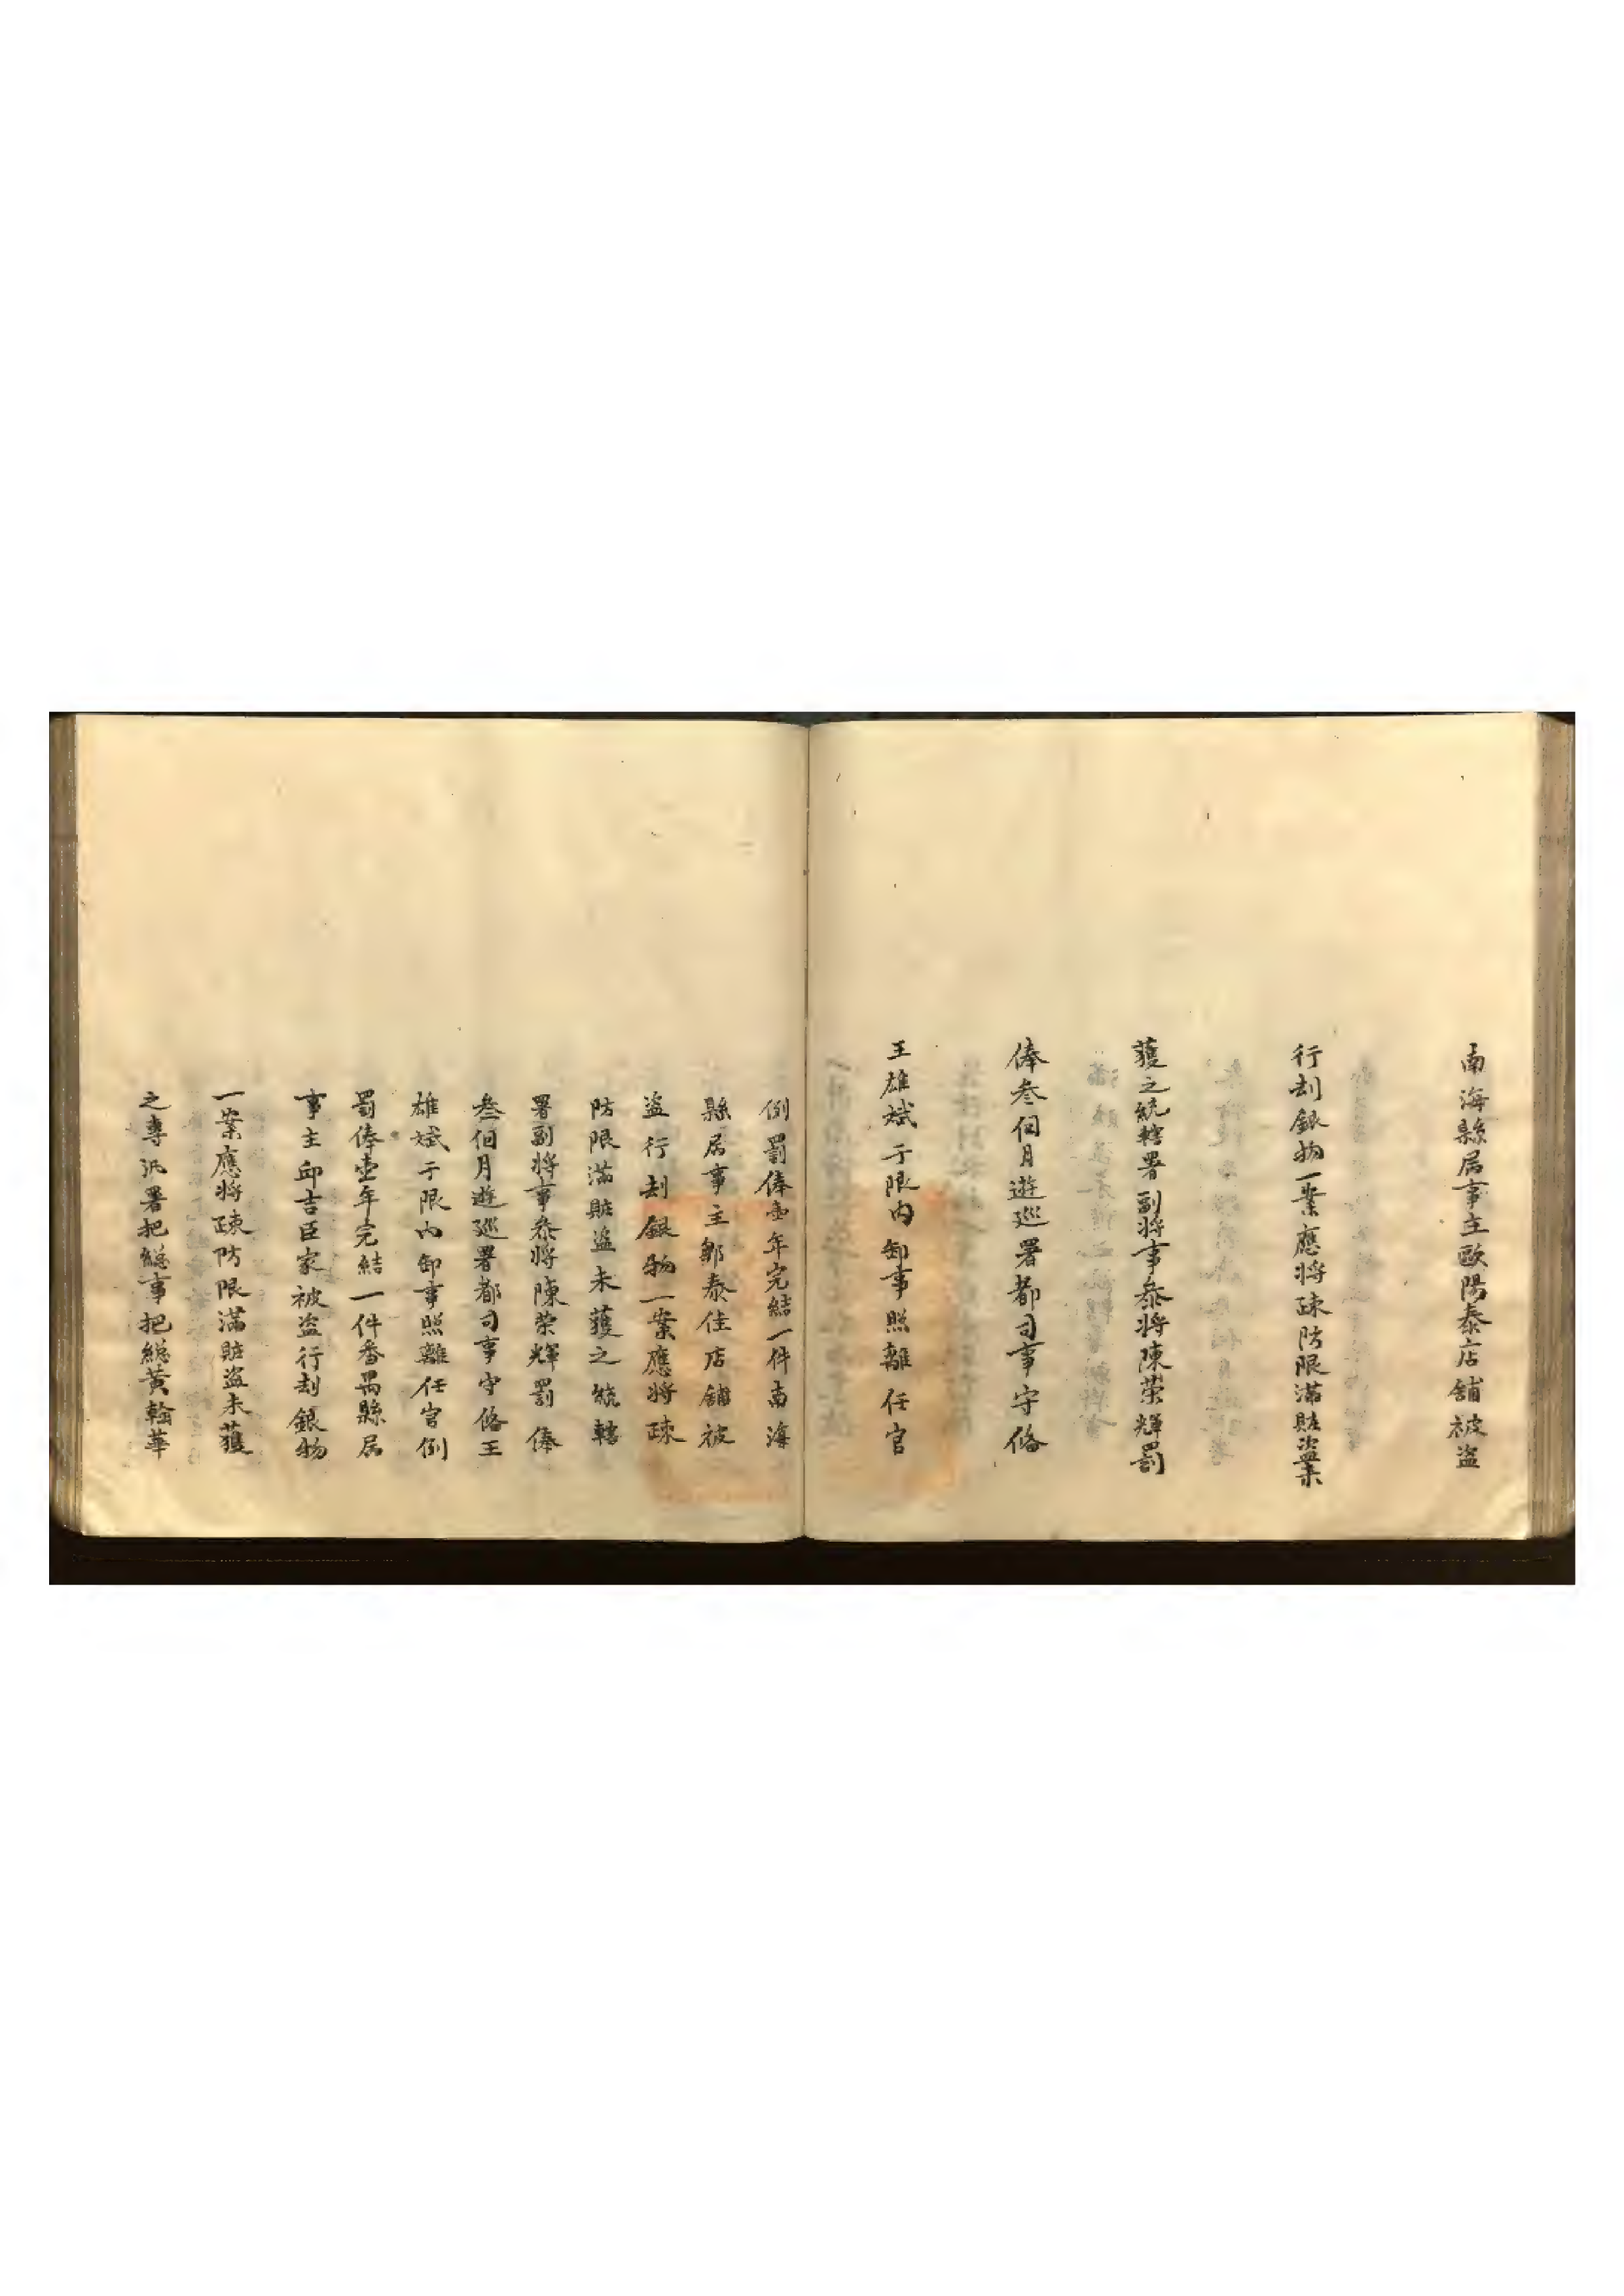 南海縣居事主歐陽泰店舖被盜
行刦銀物一案應將疎防限滿賍盜未
獲之統轄署副將事叅將陳荣輝罰
俸叁個月遊巡署都司事守俻
王雄斌于限内卸事照離任官
例罰俸壹年完結一件南海
縣居事主鄒泰佳店舖被
盜行刦銀物一案應將疎
防限滿賍盜未獲之統轄
署副將事叅將陳荣輝罰俸
叁個月遊廵署都司事守俻王
雄斌于限内卸事照離任官例
罰俸壹年完結一件番禺縣居
事主邱吉臣家被盜行刦銀物
一案應將疎防限滿賍盜未獲
之專汛署把緫事把緫黄翰華